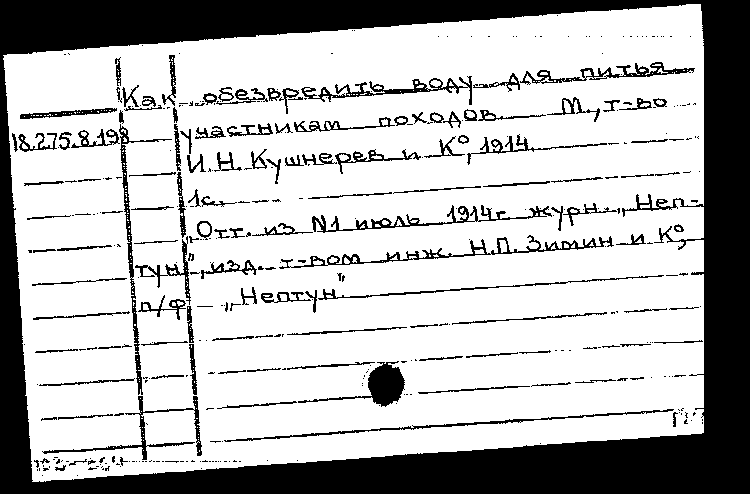 Как обезвредить воду для питья
18.275.8.198 участникам походов. М., т-во
И.Н. Кушнерев и К⁰, 1914.
1с.
„Отт. из N1 июль 1914г журн. „Неп-
тун", изд. т-вом инж. Н.П. Зимин и К⁰,
п/ф „Нептун".